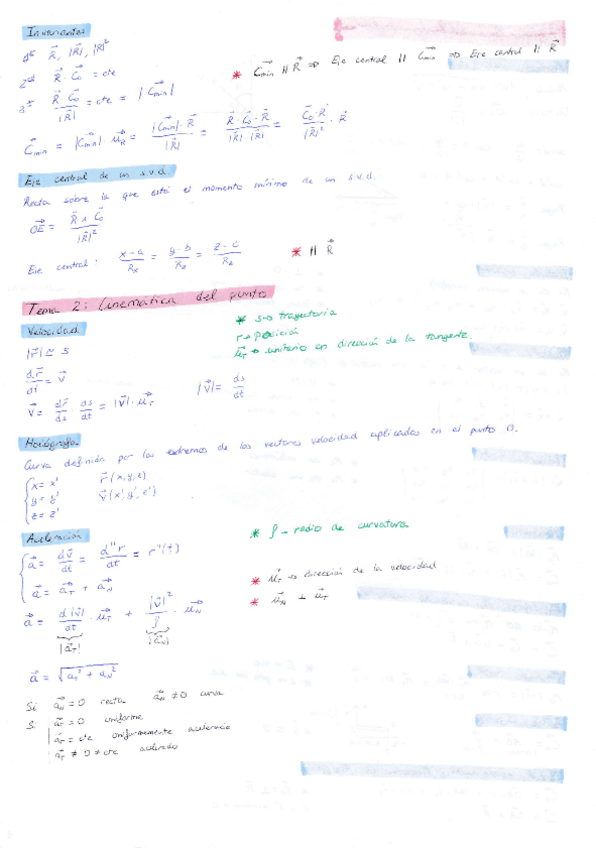 Invariantes
1er R⃗, |R⃗|, |R|²
2do R⃗ · C⃗o = cte
3er R⃗ · C⃗o / |R⃗| = cte = |C⃗min|
* C⃗min // R⃗ => Eje central // C⃗min => Eje central // R⃗
C⃗min = |C⃗min| · μ⃗R = |C⃗min| · R⃗ / |R⃗| = R⃗ · C⃗o · R⃗ / |R⃗| · |R⃗| = C⃗o · R⃗ / |R⃗|² · R⃗
Eje central de un s.v.d.
Recta sobre la que está el momento mínimo de un s.v.d.
OE⃗ = R⃗ ∧ C⃗o / |R⃗|²
Eje central: x - a / Rx = y - b / Ry = z - c / Rz
* // R⃗
Tema 2: Cinemática del punto
Velocidad
* s → trayectoria
r → posición
μ⃗T → unitario en dirección de la tangente.
|r⃗| ≃ s
dr⃗/dt = v⃗
v⃗ = dr⃗/ds · ds/dt = |v⃗| · μ⃗T
|v⃗| = ds/dt
Hodógrafa
Curva definida por los extremos de los vectores velocidad aplicados en el punto O.
x = x' r⃗(x,y,z)
y = y' v⃗(x',y',z')
z = z'
Aceleración
* ρ → radio de curvatura
a⃗ = dv⃗/dt = d''r/dt = r''(t)
a⃗ = a⃗T + a⃗N
* μ⃗T → dirección de la velocidad
* μ⃗N ⊥ μ⃗T
a⃗ = d|v⃗|/dt · μ⃗T + |v⃗|²/ρ · μ⃗N
|a⃗T| |a⃗N|
a⃗ = √aT² + aN²
Si a⃗N = 0 recta a⃗N ≠ 0 curva
Si a⃗T = 0 uniforme
a⃗T = cte uniformemente acelerado
a⃗T ≠ 0 ≠ cte acelerado